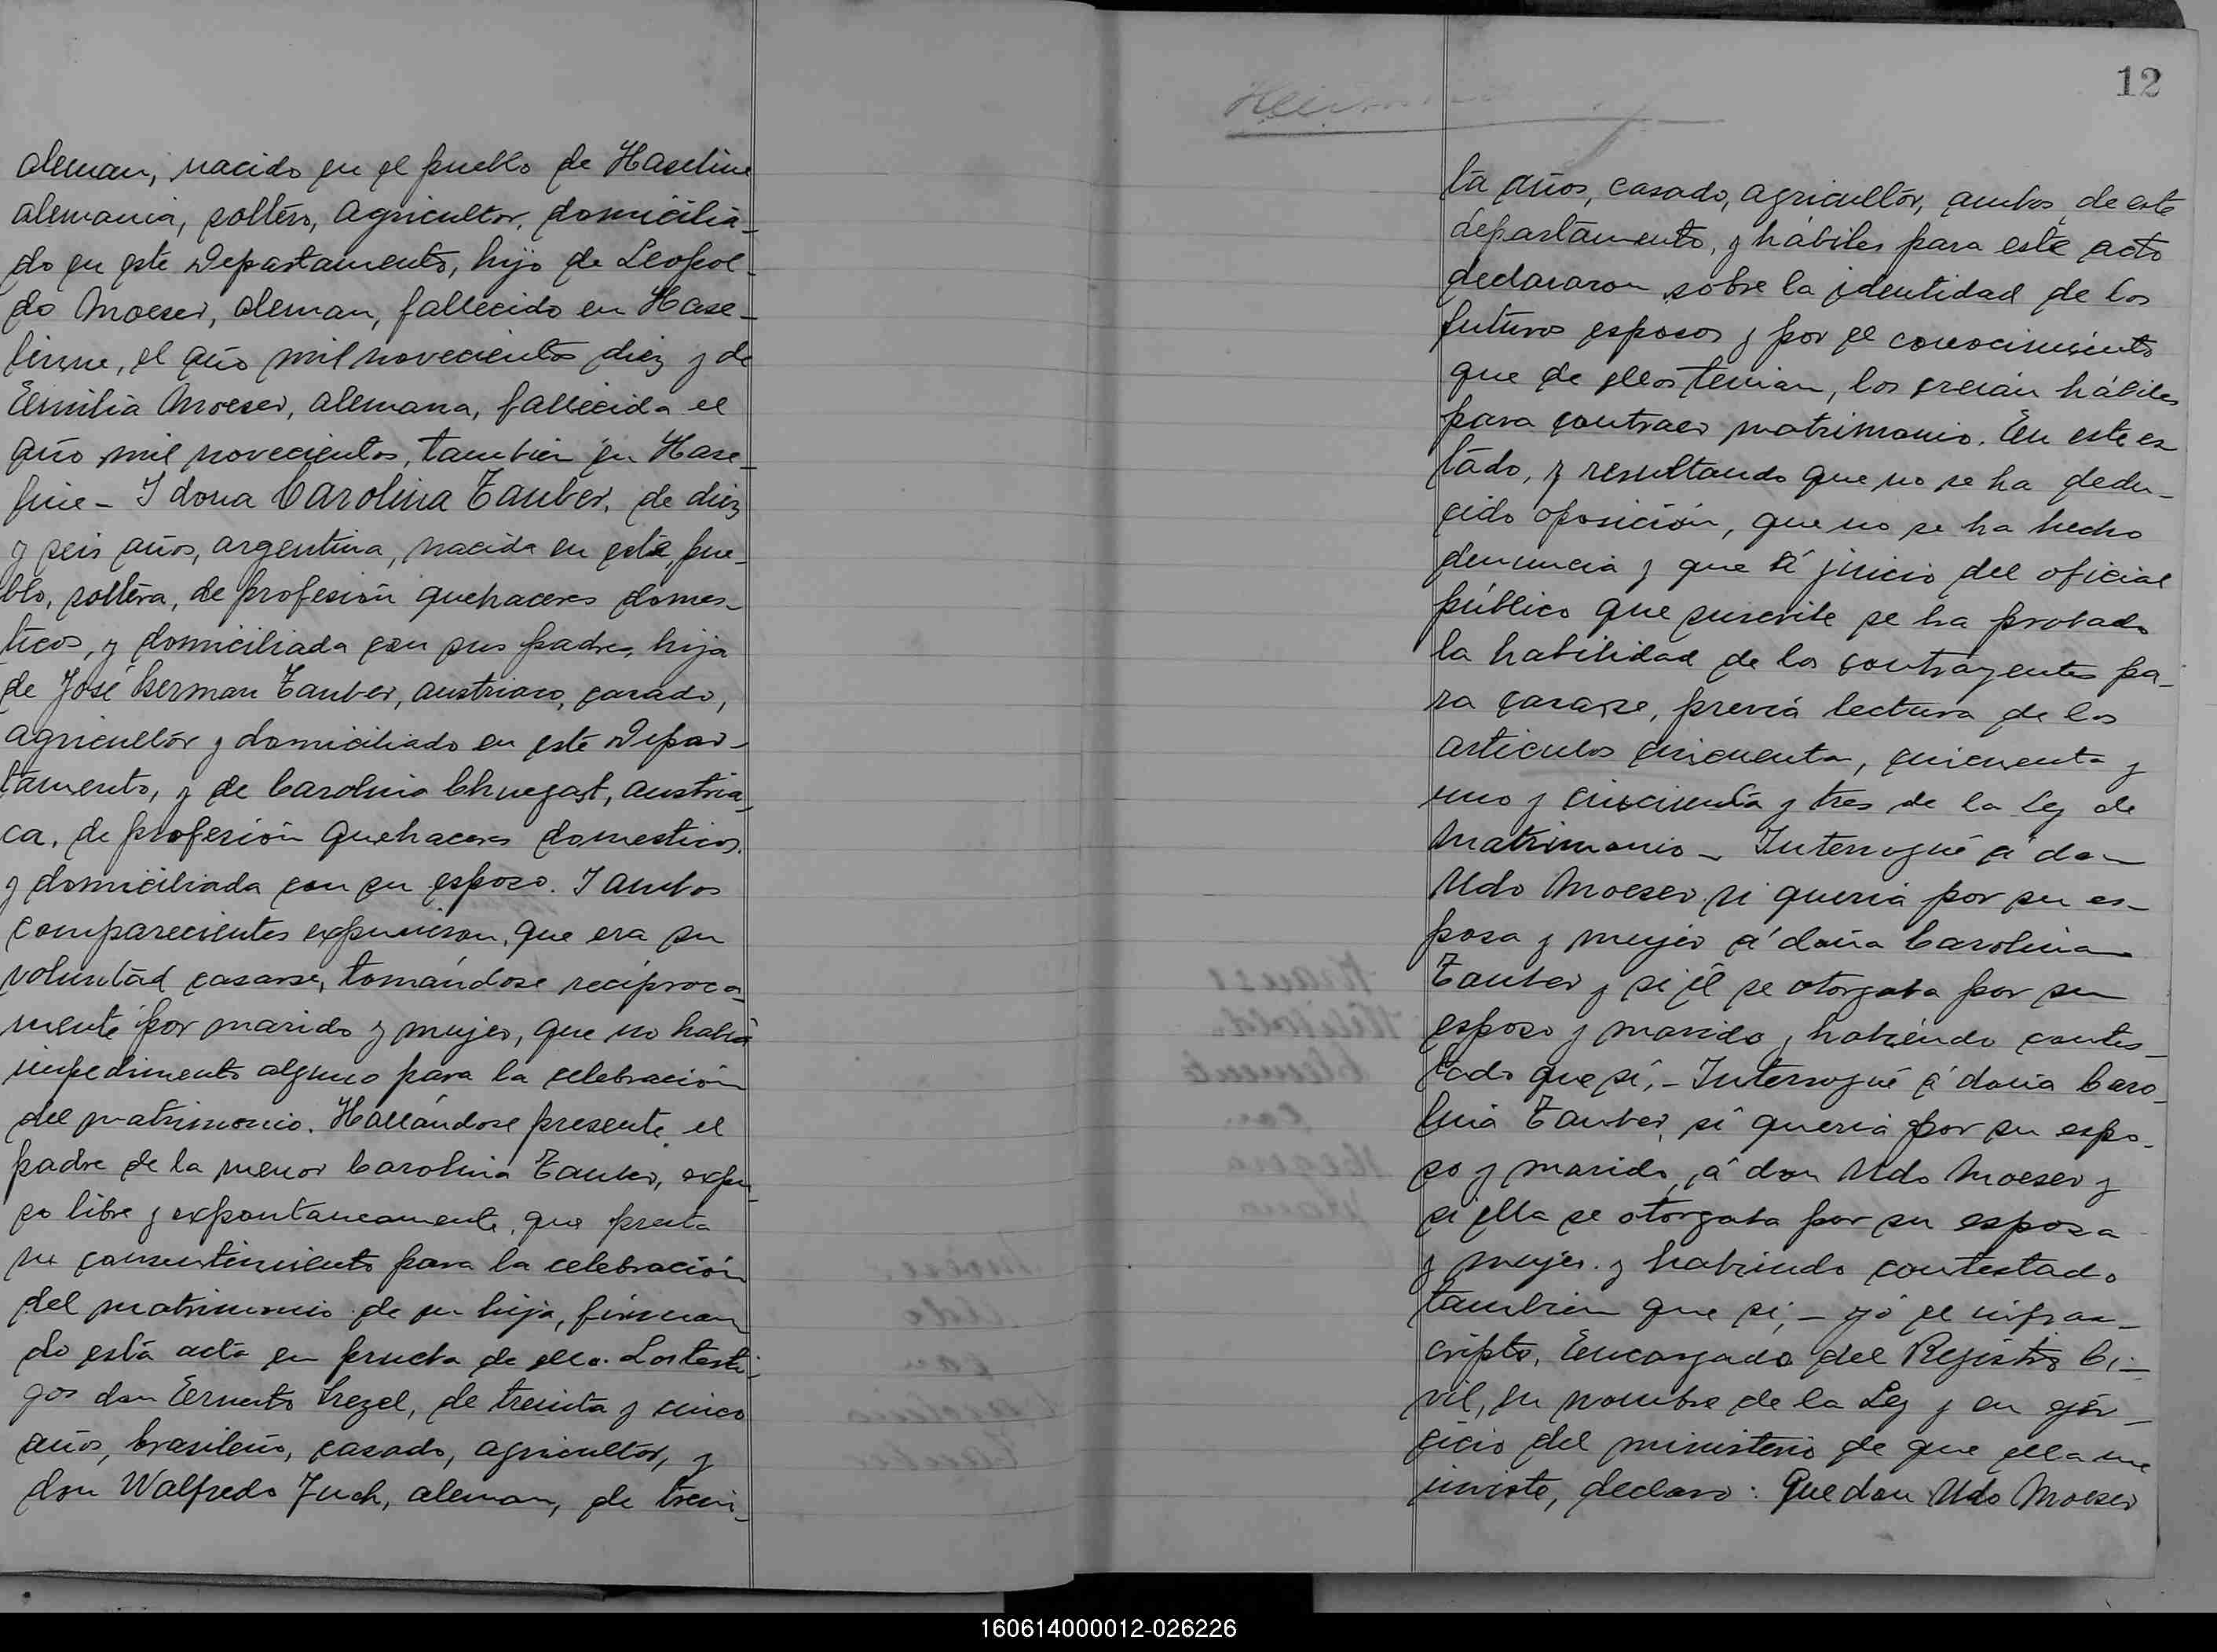 aleman, nacido en el pueblo de Haseline
alemania, soltero, agricultor, domicilia-
do en este Departamento, hijo de Leopol-
do Moeser, aleman, fallecido en Hase-
linne, el año mil novecientos diez y de
Emilia Moeser, alemana, fallecida el
año mil novecientos, tambien en Hase-
line - I doña Carolina Tauber, de diez
y seis años, argentina, nacida en este pue-
blo, soltera, de profesión quehaceres domes-
ticos, y domiciliada con sus padres, hija
de José herman Tauber, austriaco, casado,
agricultor y domiciliado en este Depar-
tamento, y de Carolina Chuegast, austria-
ca, de profesión quehaceres domesticos.
y domiciliada con su esposo. I ambos
comparecientes expusieron, que era su
voluntad casarse, tomándose recíproca-
mente por marido y mujer, que no había
impedimento alguno para la celebración
del matrimonio. Hallándose presente el
padre de la menor Carolina Tauber, expu-
so libre y expontaneamente, que presta
su consentimiento para la celebración
del matrimonio de su hija, firman
do esta acta en prueba de ello. Los testi-
gos don Ernesto hezel, de treinta y cinco
años, brasileño, casado, agricultor, y
don Walfredo Juch, aleman, de trein-
12
ta años, casado, agricultor, ambos de este
departamento, y hábiles para este acto
declararon sobre la identidad de los
futuros esposos y por el conocimiento
que de ellos tenian, los creian hábiles
para contraer matrimonio. En este es
tado, y resultando que no se ha dedu-
cido oposición, que no se ha hecho
denuncia y que á juicio del oficial
público que suscribe se ha probado
la habilidad de los contrayentes pa-
ra casarse, previa lectura de los
articulos cincuenta, cincuenta y
uno y cincuenta y tres de la Ley de
Matrimonio - Interrogué á don
Udo Moeser si queria por su es-
posa y mujer á doña Carolina
Tauber y si él se otorgaba por su
esposo y marido, y habiendo contes-
tado que sí, - Interrogué á doña Caro-
lina Tauber, si queria por su espo-
so y marido, á don Udo Moeser y
si ella se otorgaba por su esposa
y mujer. y habiendo contestado
tambien que si, - yó el infras-
cripto, Encargado del Registro Ci-
vil, en nombre de la Ley y en ejer-
cicio del ministerio de que ella me
inviste, declaro: Que don Udo Moeser
160614000012-026226